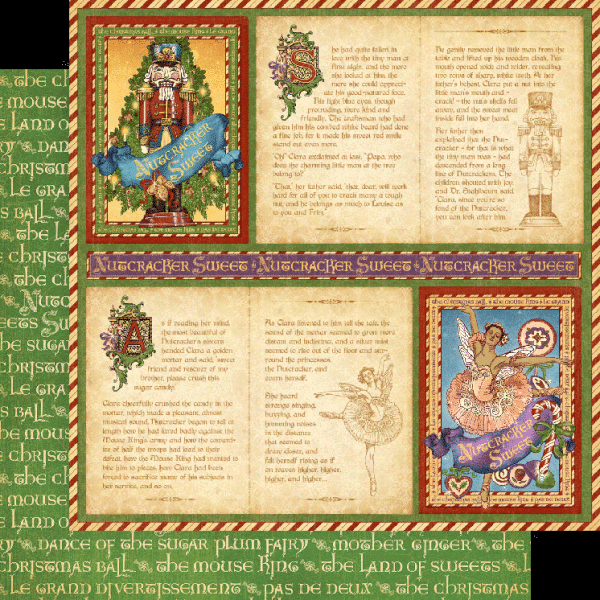 the christmas ball the mouse king le grand
Nutcracker
Sweet
She had quite fallen in
love with the tiny man at
first sight, and the more
she looked at him the
more she could appreci-
ate his good-natured face.
His light blue eyes, though
protruding, were kind and
friendly. The craftsman who had
given him his combed white beard had done
a fine job, for it made his sweet red smile
stand out even more.
"Oh!" Clara exclaimed at last, "Papa, who
does the charming little man at the tree
belong to?"
"That," her father said, "that, dear, will work
hard for all of you to crack many a tough
nut, and he belongs as much to Louise as
to you and Fritz."
He gently removed the little man from the
table and lifted up his wooden cloak. His
mouth opened wide and wider, revealing
two rows of sharp, white teeth. At her
father's behest, Clara put a nut into the
little man's mouth and -
crack! - the nut's shells fell
away, and the sweet meat
inside fell into her hand.
Her father then
explained that the Nut-
cracker - for that is what
the tiny man was - had
descended from a long
line of Nutcrackers. The
children shouted with joy
and Dr. Stahlbaum said,
"Clara, since you're so
fond of the Nutcracker,
you can look after him.
Nutcracker Sweet Nutcracker Sweet Nutcracker Sweet
As if reading her mind,
the most beautiful of
Nutcracker's sisters
handed Clara a golden
mortar and said, "Sweet
friend and rescuer of my
brother, please crush this
sugar candy."
Clara cheerfully crushed the candy in the
mortar, which made a pleasant, almost
musical sound. Nutcracker began to tell at
length how he had fared badly against the
Mouse King's army and how the coward-
ice of half the troops had lead to their
defeat, how the Mouse King had wanted to
bite him to pieces, how Clara had been
forced to sacrifice some of his subjects in
her service, and so on.
As Clara listened to him tell the tale, the
sound of the mortar seemed to grow more
distant and indistinct, and a silver mist
seemed to rise out of the floor and sur-
round the princesses,
the Nutcracker, and
even herself.
She heard
strange singing,
buzzing, and
humming noises
in the distance
that seemed to
draw closer, and
felt herself rising as if
on waves higher, higher,
higher, and higher...
the christmas ball the mouse king le grand
Nutcracker
Sweet
the mouse
the land of
christmas
le grand
ball
the mouse
the christmas
Nutcracker
Sweets
the sugar
christmas
le grand
ball
the mouse
the land of
dance of the sugar plum fairy mother ginger the
christmas ball the mouse king the land of sweets
le grand divertissement pas de deux the christmas